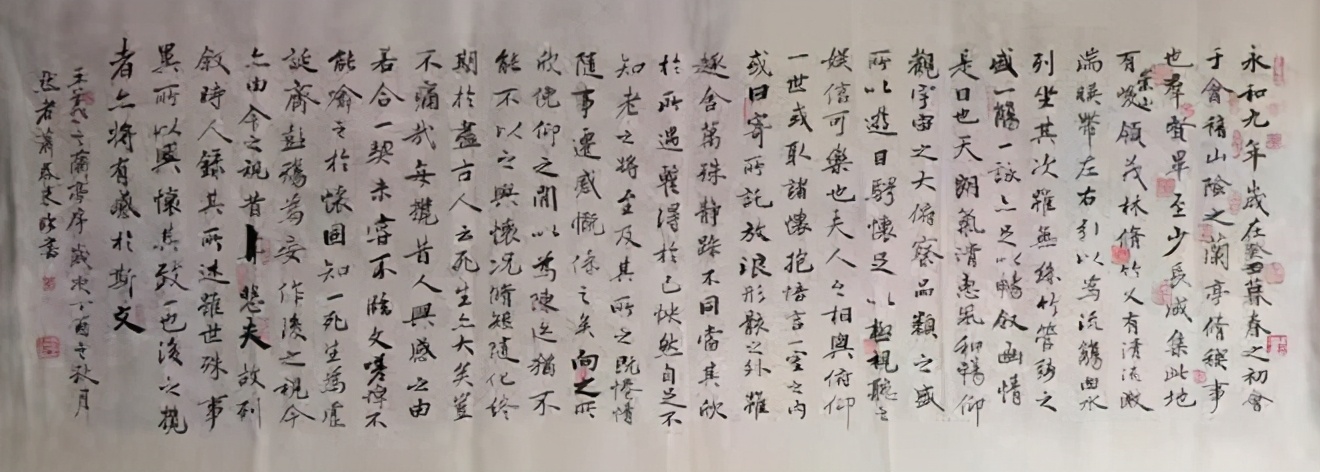 永和九年歲在癸丑暮春之初會
于會稽山陰之蘭亭脩稧事
也羣賢畢至少長咸集此地
有崇山峻領茂林脩竹又有清流激
湍暎帶左右引以為流觴曲水
列坐其次雖無絲竹管弦之
盛一觴一詠亦足以暢叙幽情
是日也天朗氣清惠風和暢仰
觀宇宙之大俯察品類之盛
所以遊目騁懷足以極視聽之
娛信可樂也夫人之相與俯仰
一世或取諸懷抱悟言一室之內
或因寄所託放浪形骸之外雖
趣舍萬殊靜躁不同當其欣
於所遇蹔得於己怏然自足不
知老之將至及其所之既惓情
隨事遷感慨係之矣向之所
欣俛仰之間以為陳迹猶不
能不以之興懷況脩短隨化終
期於盡古人云死生亦大矣豈
不痛哉每攬昔人興感之由
若合一契未嘗不臨文嗟悼不
能喻之於懷固知一死生為虛
誕齊彭殤為妄作後之視今
亦由今之視昔悲夫故列
叙時人錄其所述雖世殊事
異所以興懷其致一也後之攬
者亦將有感於斯文
王羲之蘭亭序歲次丁酉之秋月
者蕭春來書